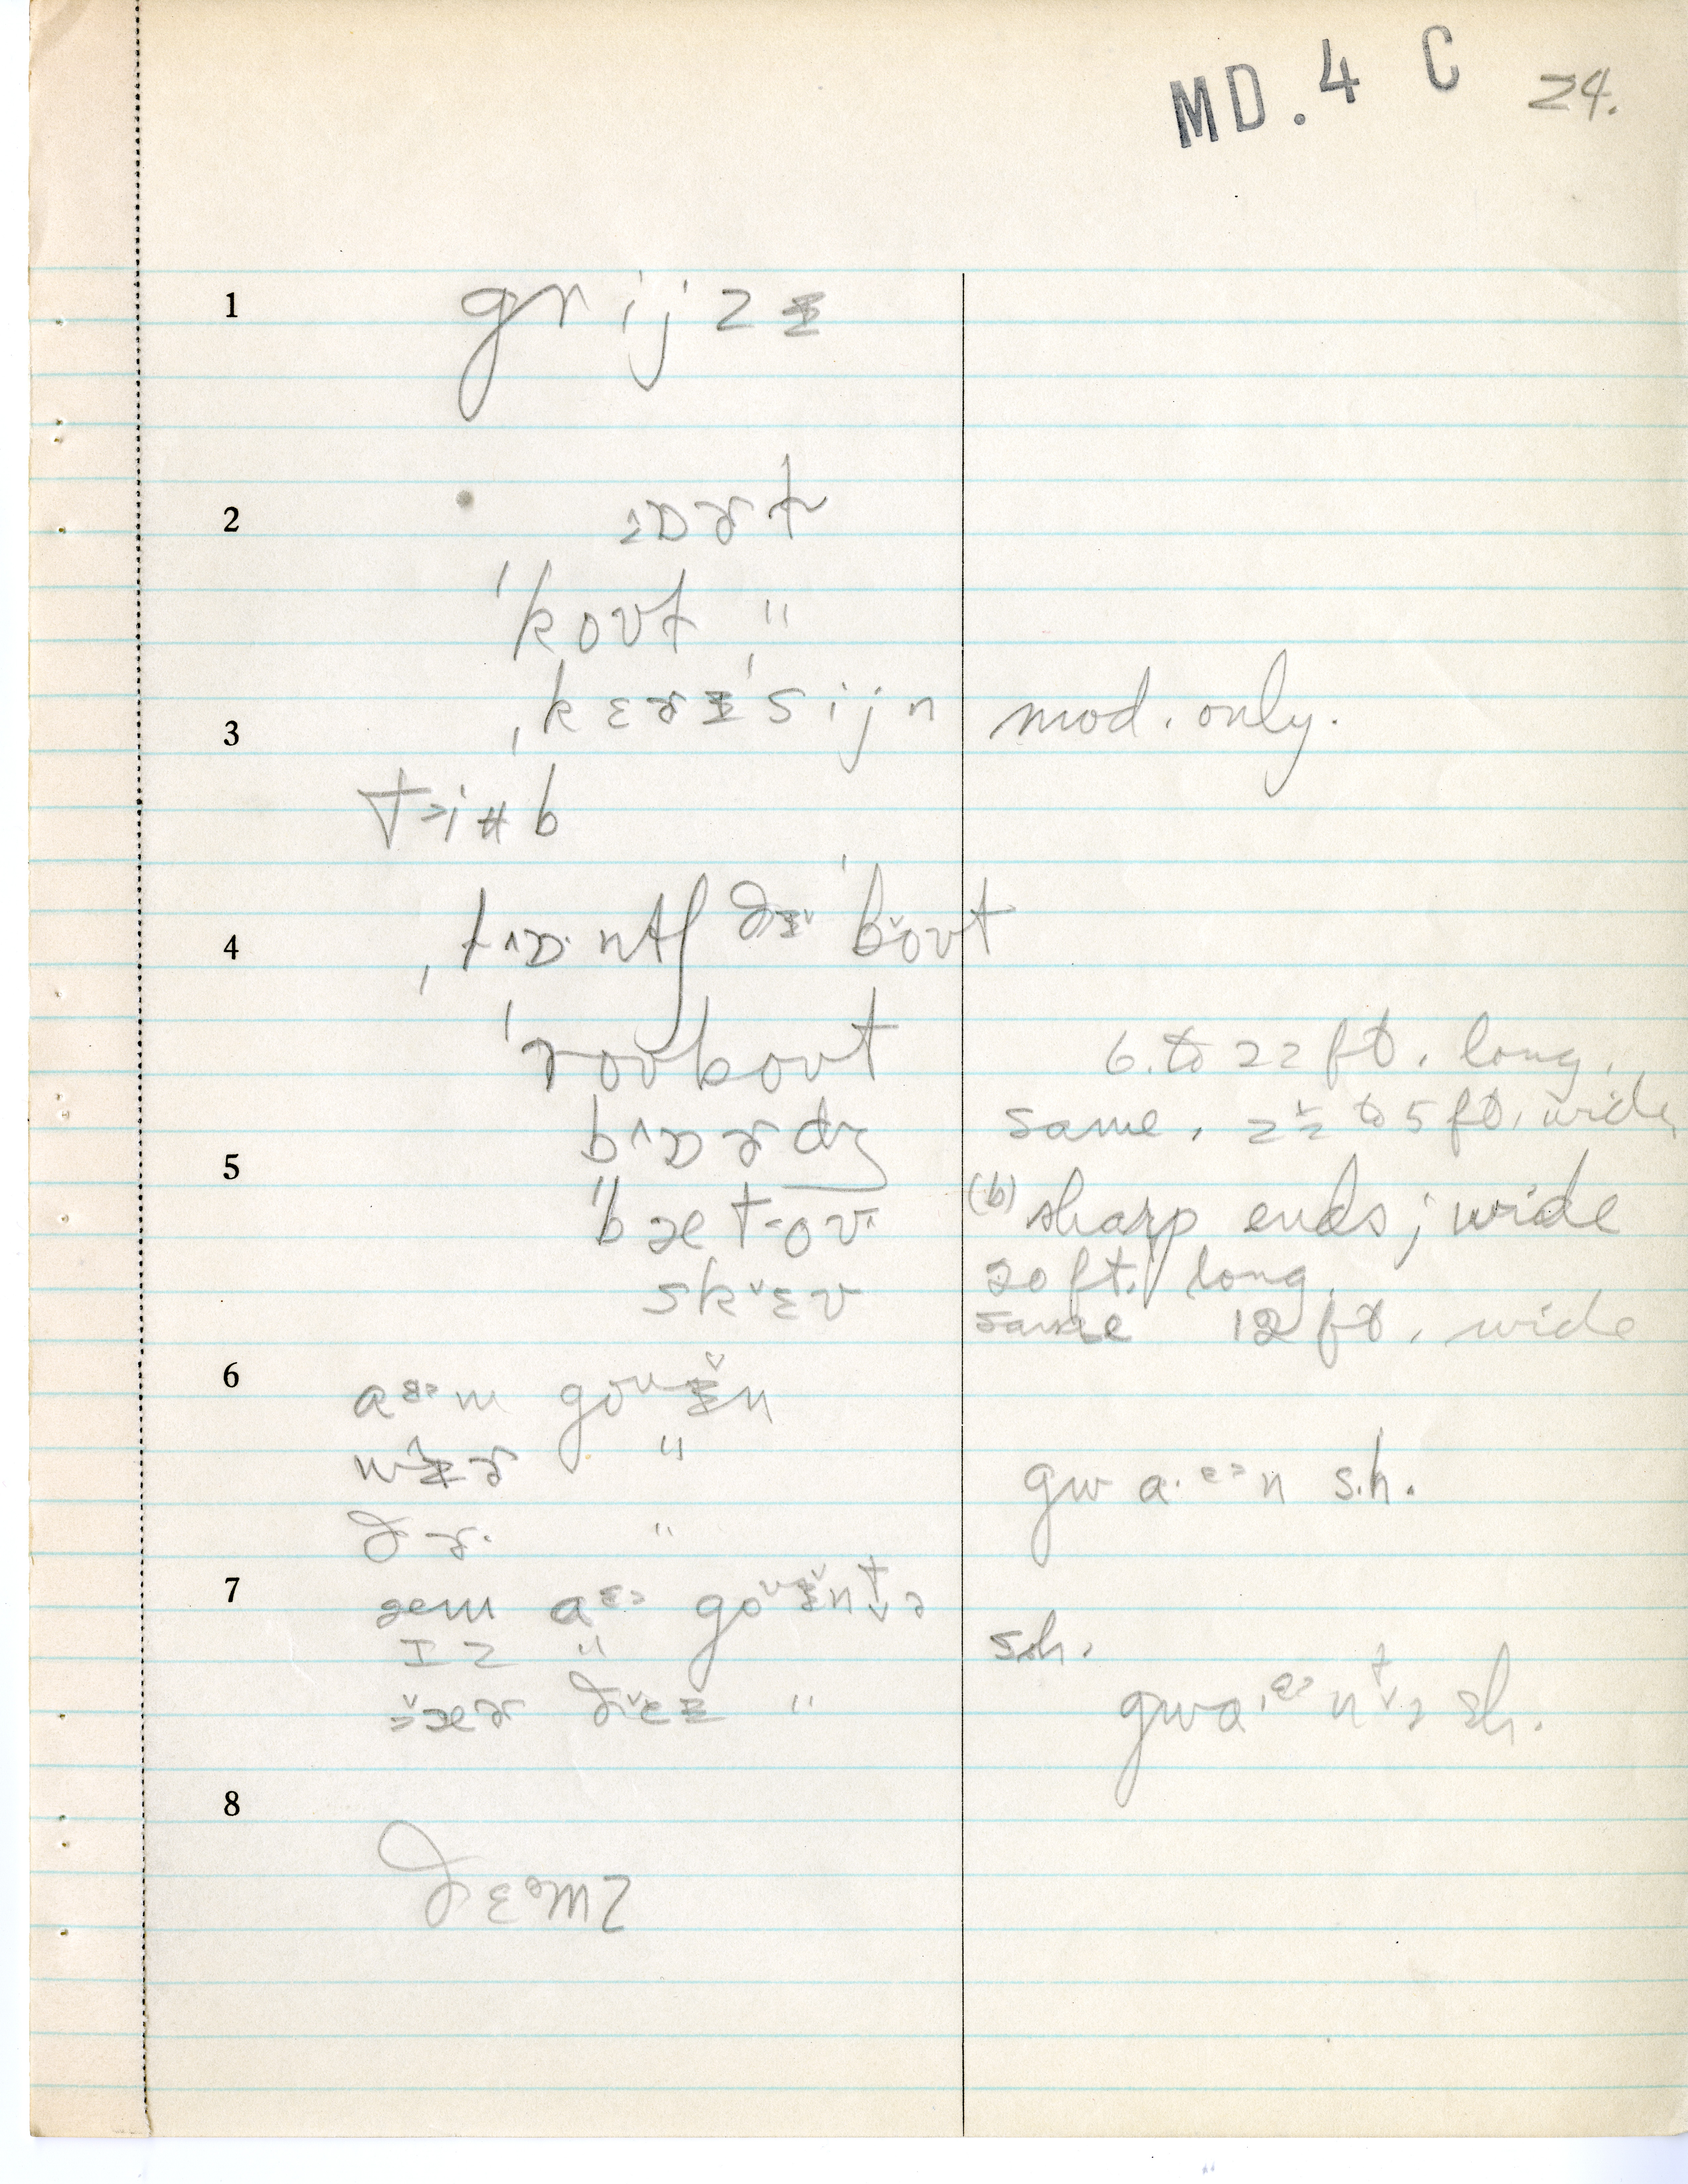 MD. 4 C 24.
1 grijzɪ
2 ɒɚt
ˈkoʊt "
ˌkɛɚɪˈsijn mod. only.
3
tʉb
4 ˌtɒntʃ ðɪ ˈboʊt
ˈroʊboʊt 6. to 22 ft. long.
bɒɚdʒ same, 2½ to 5 ft. wide
5
bætoʊ (b) sharp ends; wide
skɛʊ 20 ft. long.
same 12 ft. wide
6
m goʊɪn
wɪɚ "
gwa·ᵋᵊn s.h.
ðɚ· "
7
æm aᵋᵊ goʊɪntə
ɪz " s.h.
æɚ ðɛɪ " gwa·ᵋᵊntə sh.
8
ðɛᵊmz